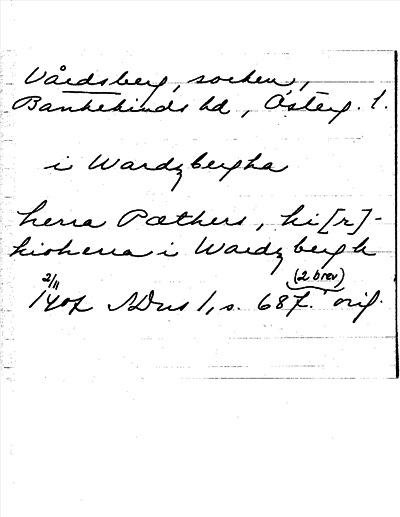 Vårdsberg, socken,
Bankekinds hd, Österg. l.
i Wardzbergha
herra Pæthers, ki[r]-
kioherra i Wardzbergh
2/11 (2 brev)
1407 SDns 1, s. 687. orig.